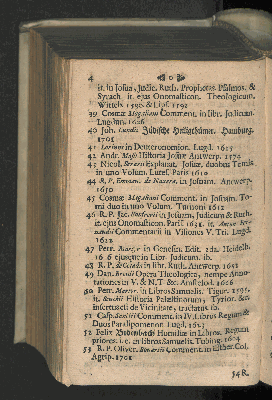 4
it. in Josua, Judic. Ruth. Prophetas. Psalmos. &
Syrach it. ejus Onomasticon. Theologicum.
Witteb. 1596. & Lips. 1592
39 Cosmæ Magaliani Comment. in libr. Judicum.
Lugdun. 1626
40 Joh. Lundii Jüdische Heiligthümer. Hamburg.
1701
41 Lorinus in Deuteronomion. Lugd. 1625
42 Andr. Masii Historia Josuæ Antwerp. 1574
43 Nicol. Serarii Explanat. Josuæ, duobus Tomis.
in uno Volum. Lutet. Paris 1610
44 R. P. Emman. de Naxera. in Josuam. Antwerp.
1650
45 Cosmæ Magaliani Comment. in Josuam. To-
mi duo in uno Volum. Turnoni 1612
46 R. P. Jac. Bonfrerii in Josuam, Judicum & Ruth.
it. ejus Onomasticon. Paris 1631. it.
Commentarii in Visiones V. Tri. Lugd.
1622
47 Petr. Martyr in Genesin. Edit. 2da. Heidelb.
1606 ejusque in Libr. Judicum. ib.
48 R. P. de Celada in libr. Ruth. Antwerp. 1651
49 Dan. Brenii Opera Theologica, nempe Anno-
tationes in V. & N. T. &c. Amstelod. 1666
50 Petr. Martyr. in Libros Samuelis. Tigur. 1595.
it. Historia Palæstinorum, Tyrior. &c.
insertus est de Vicinitate, tractatus ib.
51 Casp. Sanctii Comment. in IV. Libros Regum &
Duos Paralipomenon. Lugd. 1623
52 Felix Bidenbachs Homiliæ in Libros. Regum
priores: i.e. in libros Samuelis. Tubing. 1604
53 R. P. Oliver. Bonartii Comment. in Esther. Col.
Agrip. 1701
54 R.